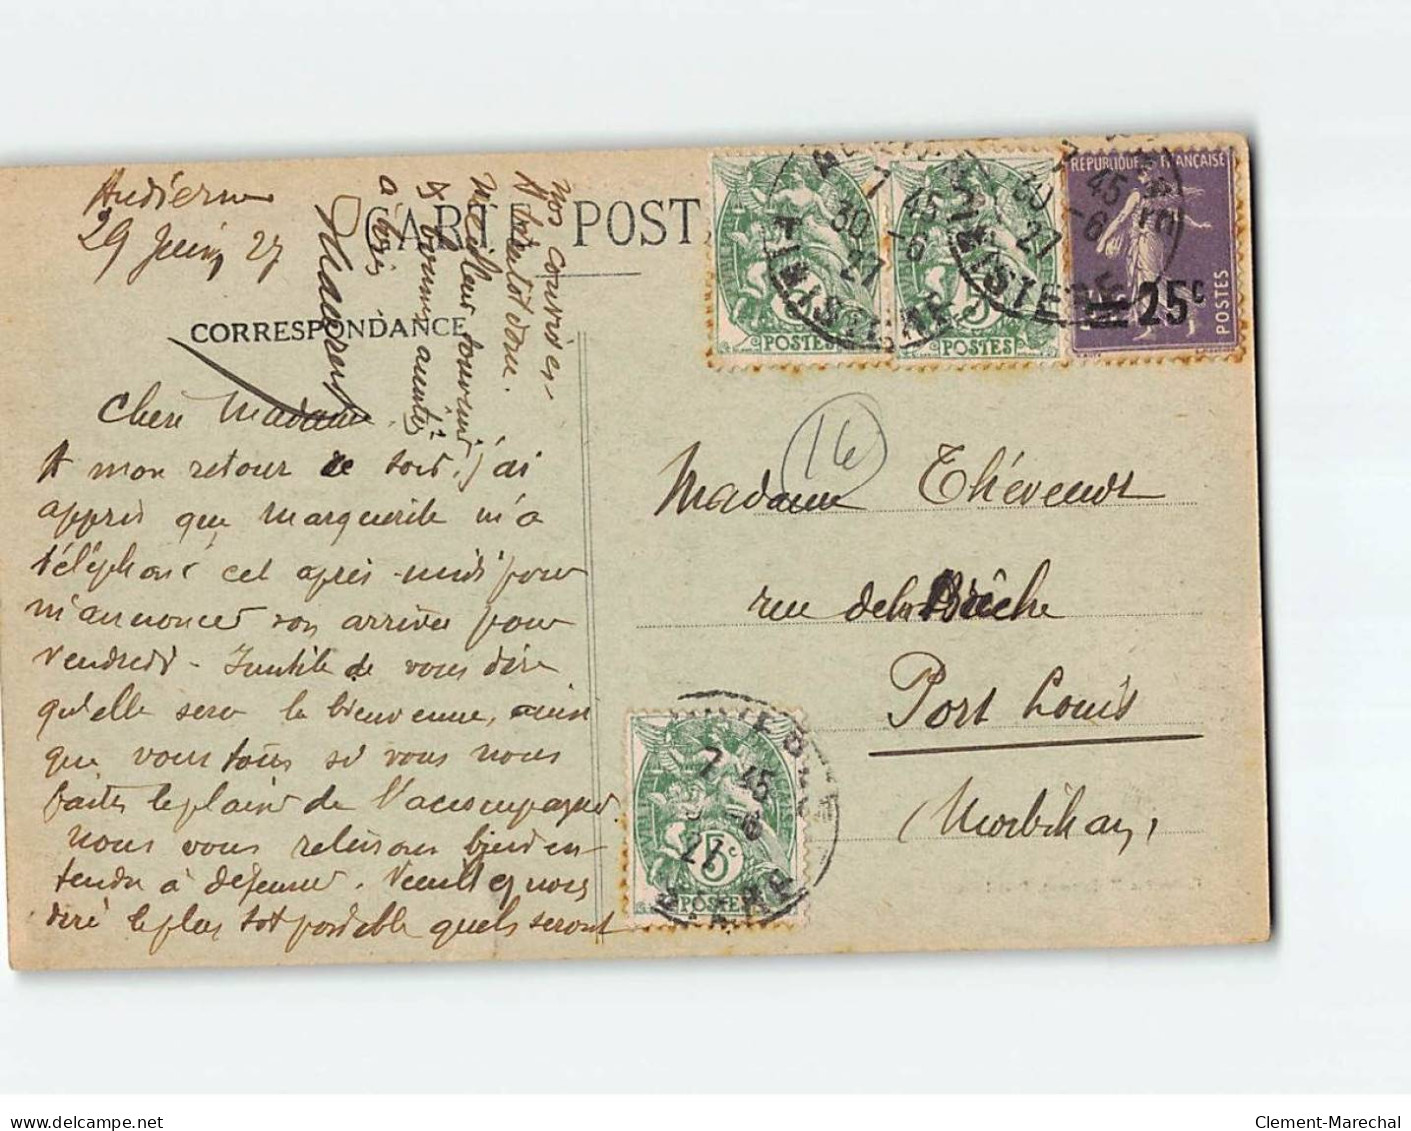 Audierne
29 Juin 27
CARTE POST
CORRESPONDANCE
Chère Madame,
A mon retour ce soir, j'ai
appris que Marguerite m'a
téléphoné cet après-midi pour
m'annoncer son arrivée pour
vendredi - Inutile de vous dire
qu'elle sera la bienvenue, ainsi
que vous tous si vous nous
faites le plaisir de l'accompagner.
Nous vous retenons bien en-
tendu à déjeuner. Veuillez nous
dire le plus tôt possible quels seront
vos convives
A bientôt donc.
Meilleur souvenir
& bonnes amitiés
à tous
14
Madame Thévenot
rue de la Brèche
Port Louis
Morbihan,
RÉPUBLIQUE FRANÇAISE
POSTES
25c
5c
POSTES
POSTES
5c
POSTES
7 45
30 -6
27
FINISTERE
7 45
30 -6
27
FINISTERE
7 45
-6
27
Clement-Marechal
delcampe.net